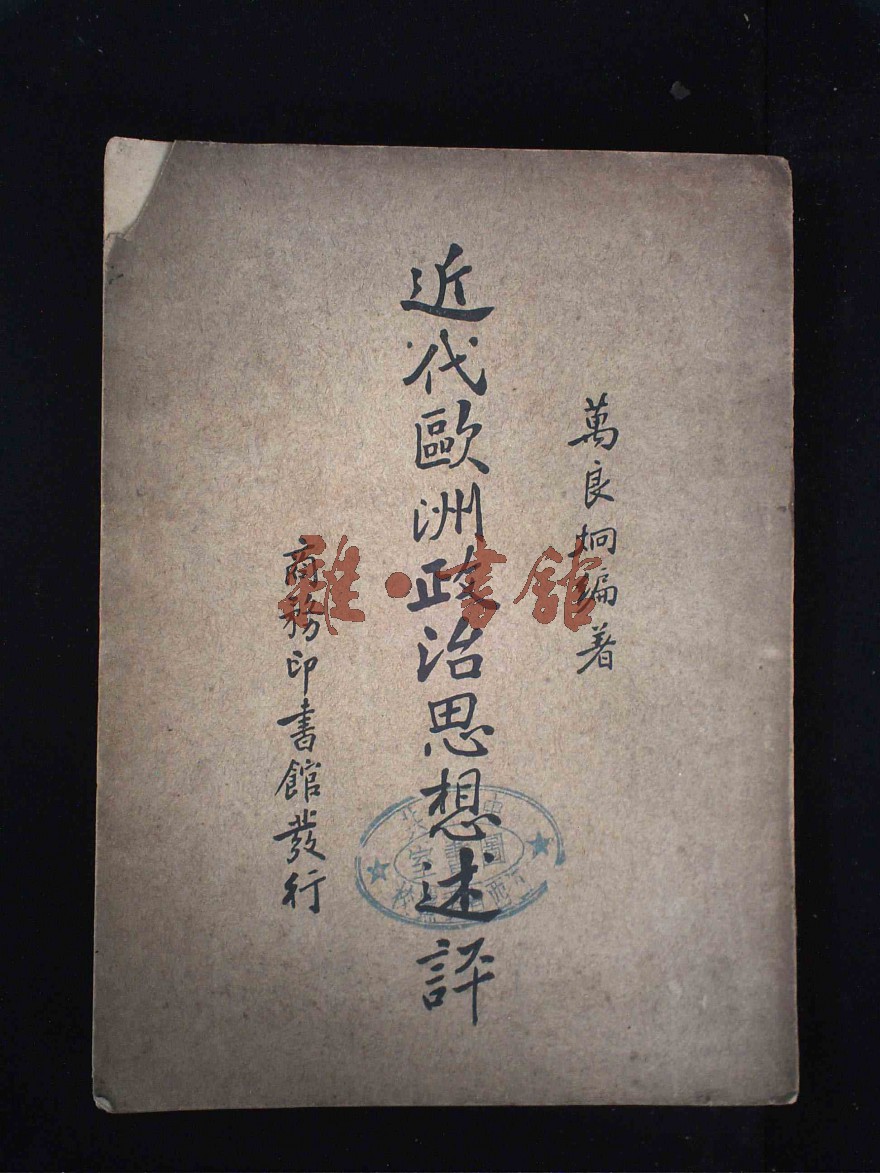 萬良炯編著
近代歐洲政治思想述評
商務印書館發行
雜·書館
圖書室